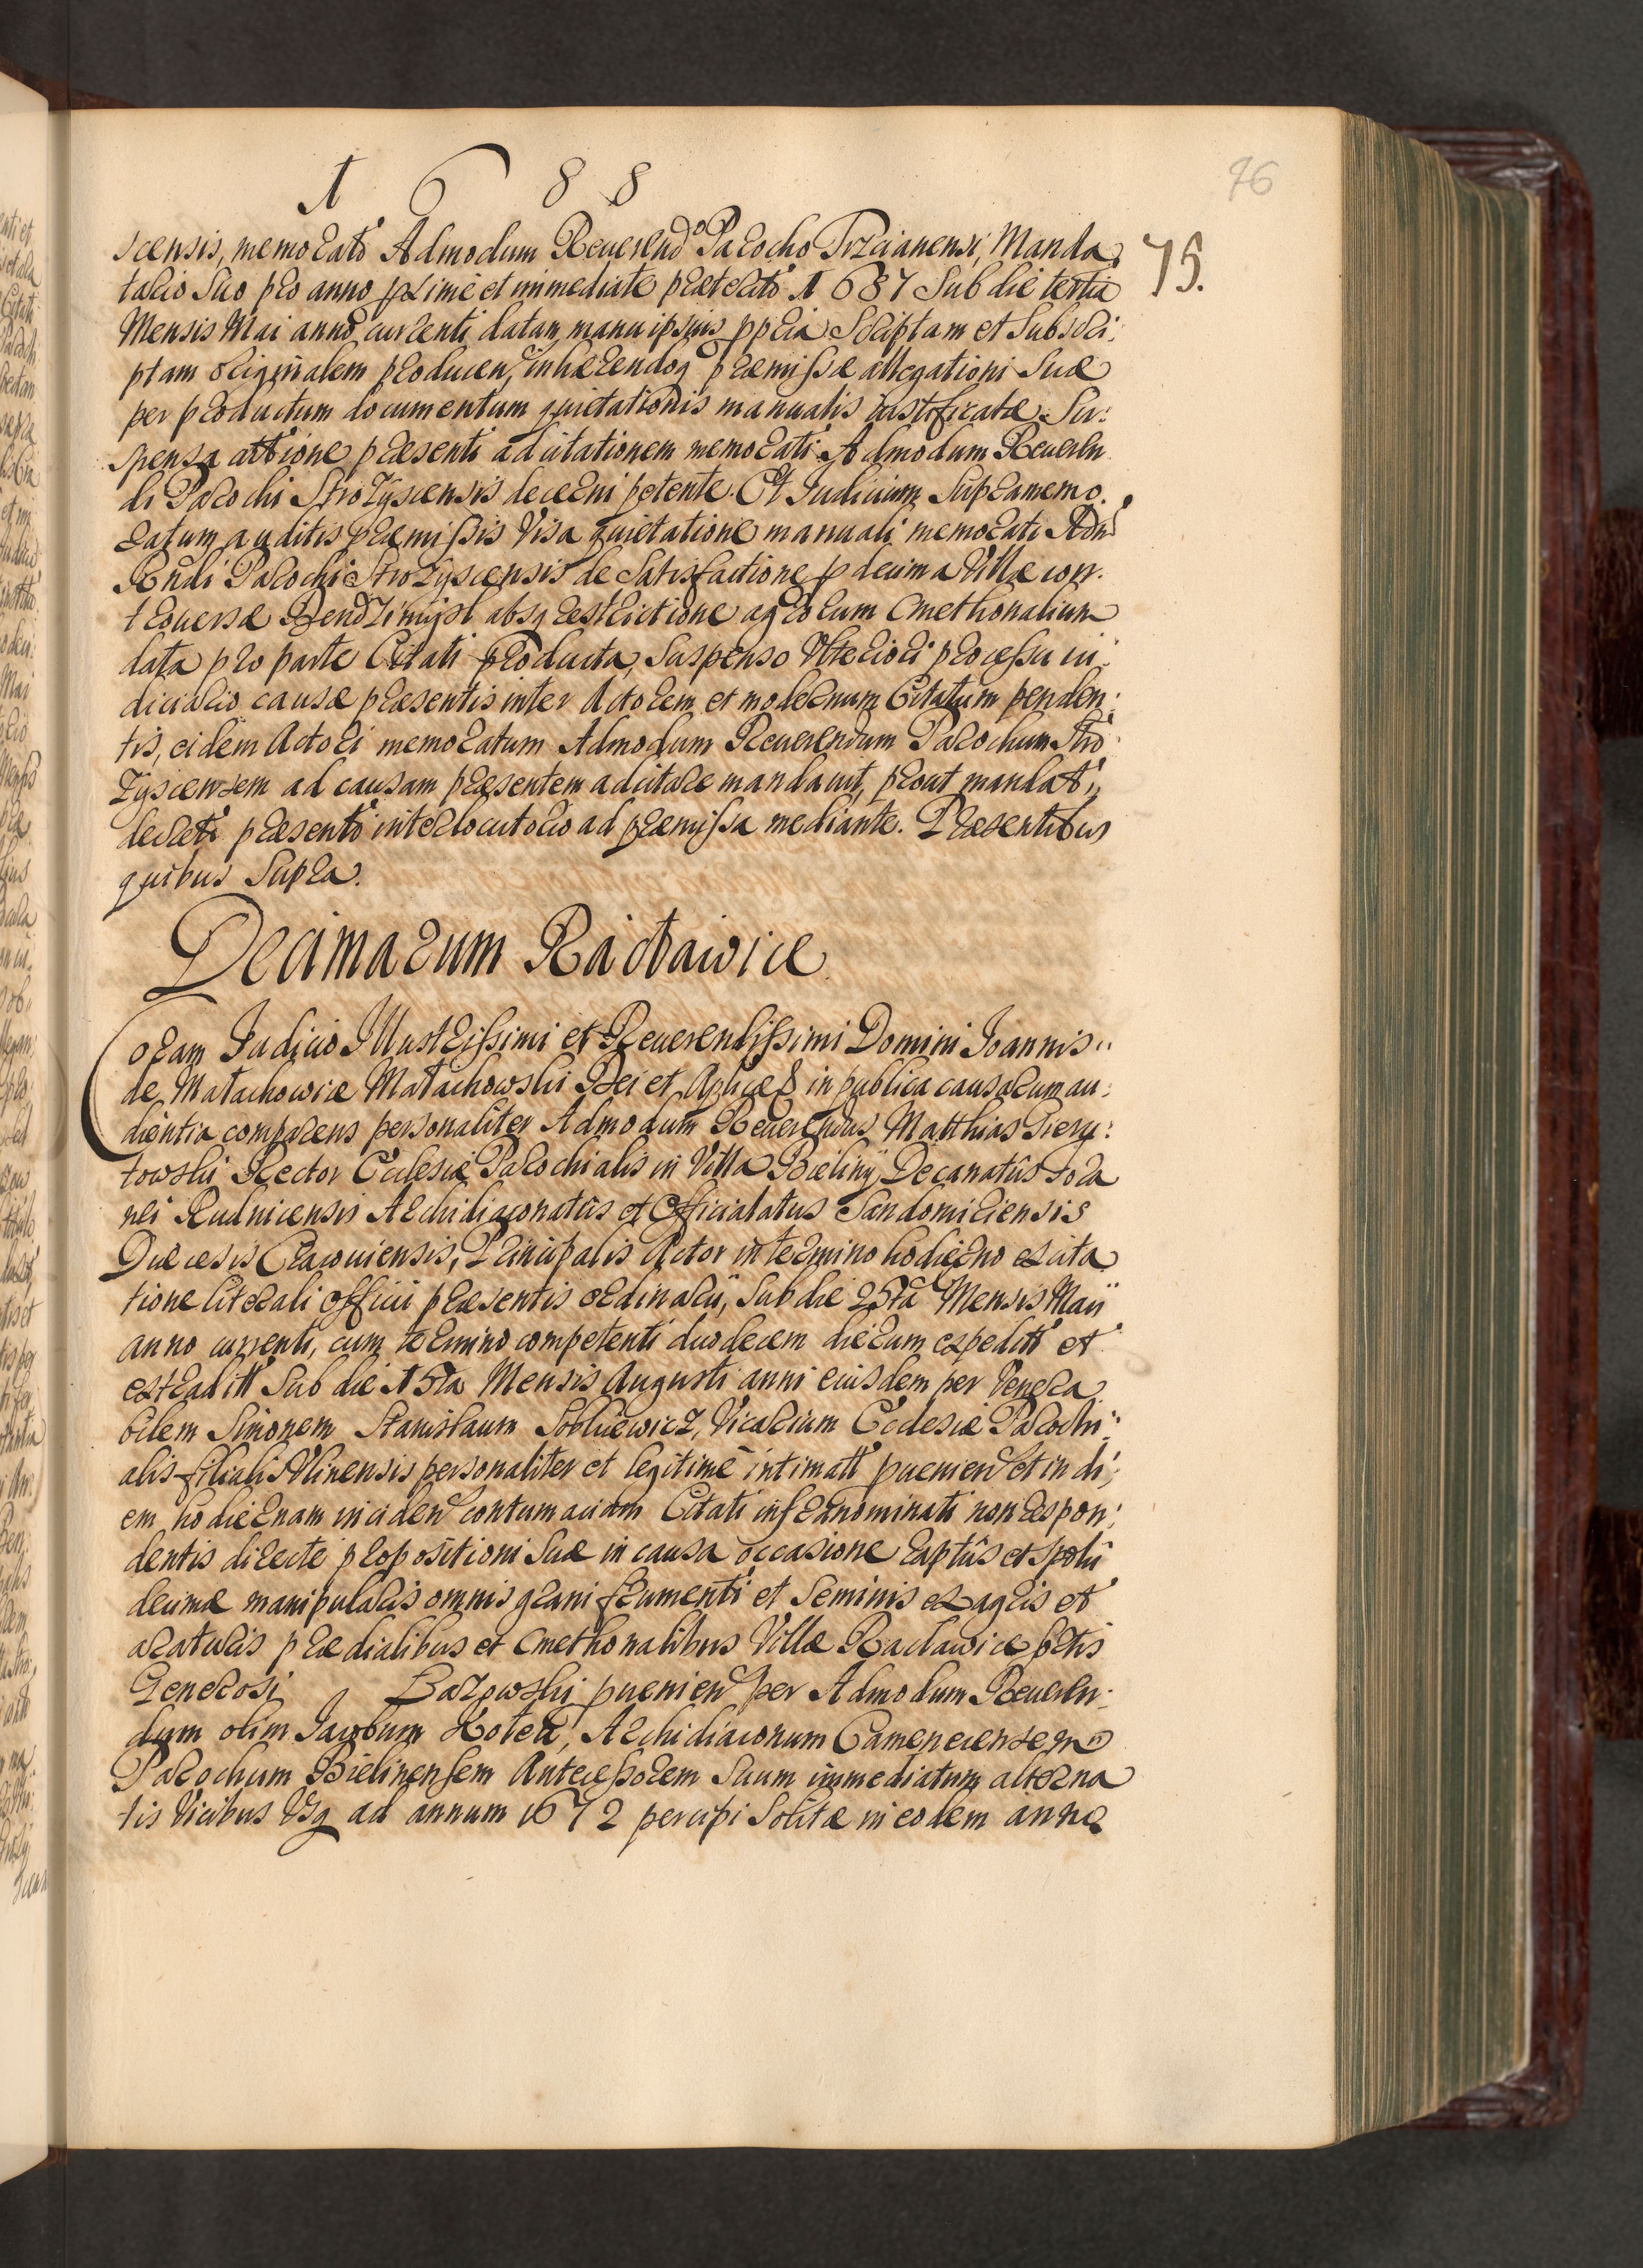 1688
76
75.
scensis, memorato Admodum Reuerendo Parocho Trzcianensi, Manda
tario suo pro anno proxime et immediate præterito 1687 Sub die tertia
Mensis Mai anno currenti datam, manu ipsius ppria Scriptam et Subscri:
ptam originalem producen, inhærendoq præmissæ allegationi Suæ
per productum documentum quietationis manualis iustificatæ. Su:
spensa attione præsenti ad citationem memorati Admodum Reueren
di Parochi Strozyscensis decerni petente. Et Iudicium Supramemo.
ratum, auditis præmissis Visa quietatione manuali memorati Adm
Rndi Parochi Strozyscensis de Satisfactione p decima Villæ con.
trouersæ Dendzimysl absq restrictione agrorum Cmethonalium
data pro parte Citati producta, Suspenso Vlteriori processu iu:
diciario causæ præsentis inter Actorem et modernum Citatum penden:
tis, eidem Actori memoratum Admodum Reuerendum Parochum Stro
zyscensem ad causam præsentem adcitare mandauit, prout mandat,,
decreto præsenti interlocutorio ad præmissa mediante. Præsentibus
quibus Supra.
Decimarum Racławice
Coram Iudicio Illustrissimi et Reuerendissimi Domini Ioannis,,
de Małachowice Małachowski Dei et Aplicæ S in publica causarum au:
dientia comparens personaliter Admodum Reuerendus Matthias
towski Rector Ecclesiæ Parochialis in Villa Bieliny Decanatûs fora
nei Rudnicensis Archidiaconatûs et Officialatus Sandomiriensis
Diæcesis Cracouiensis, Principalis Actor in termino hodierno ex cita
tione literali officii præsentis ordinarii, Sub die 25ta Mensis Maii
anno currenti, cum termino competenti duodecem dierum expedit et
extradit Sub die 15ta Mensis Augusti anni eiusdem per Venera
bilem Simonem Stanisłaum Vicarium Ecclesiæ Parochi:
alis filialis Vlinensis personaliter et legitimè intimatt puenien et in di:
em hodiernam inciden contumaciam Citati infranominati non respon:
dentis directe propositioni Suæ in causa occasione raptûs et spolii
decimæ manipularis omnis grani frumenti et Seminis ex agris et
araturis prædialibus et Cmethonalibus Villæ Racławice
Generosi Bazowski puenien per Admodum Reueren:
dum olim Iacobum Archidiaconum Camenecensem
Parochum Bielinensem Antecessorem Suum immediatum alterna
tis Vicibus Vsq ad annum 1672 percipi Solitæ in eodem anno